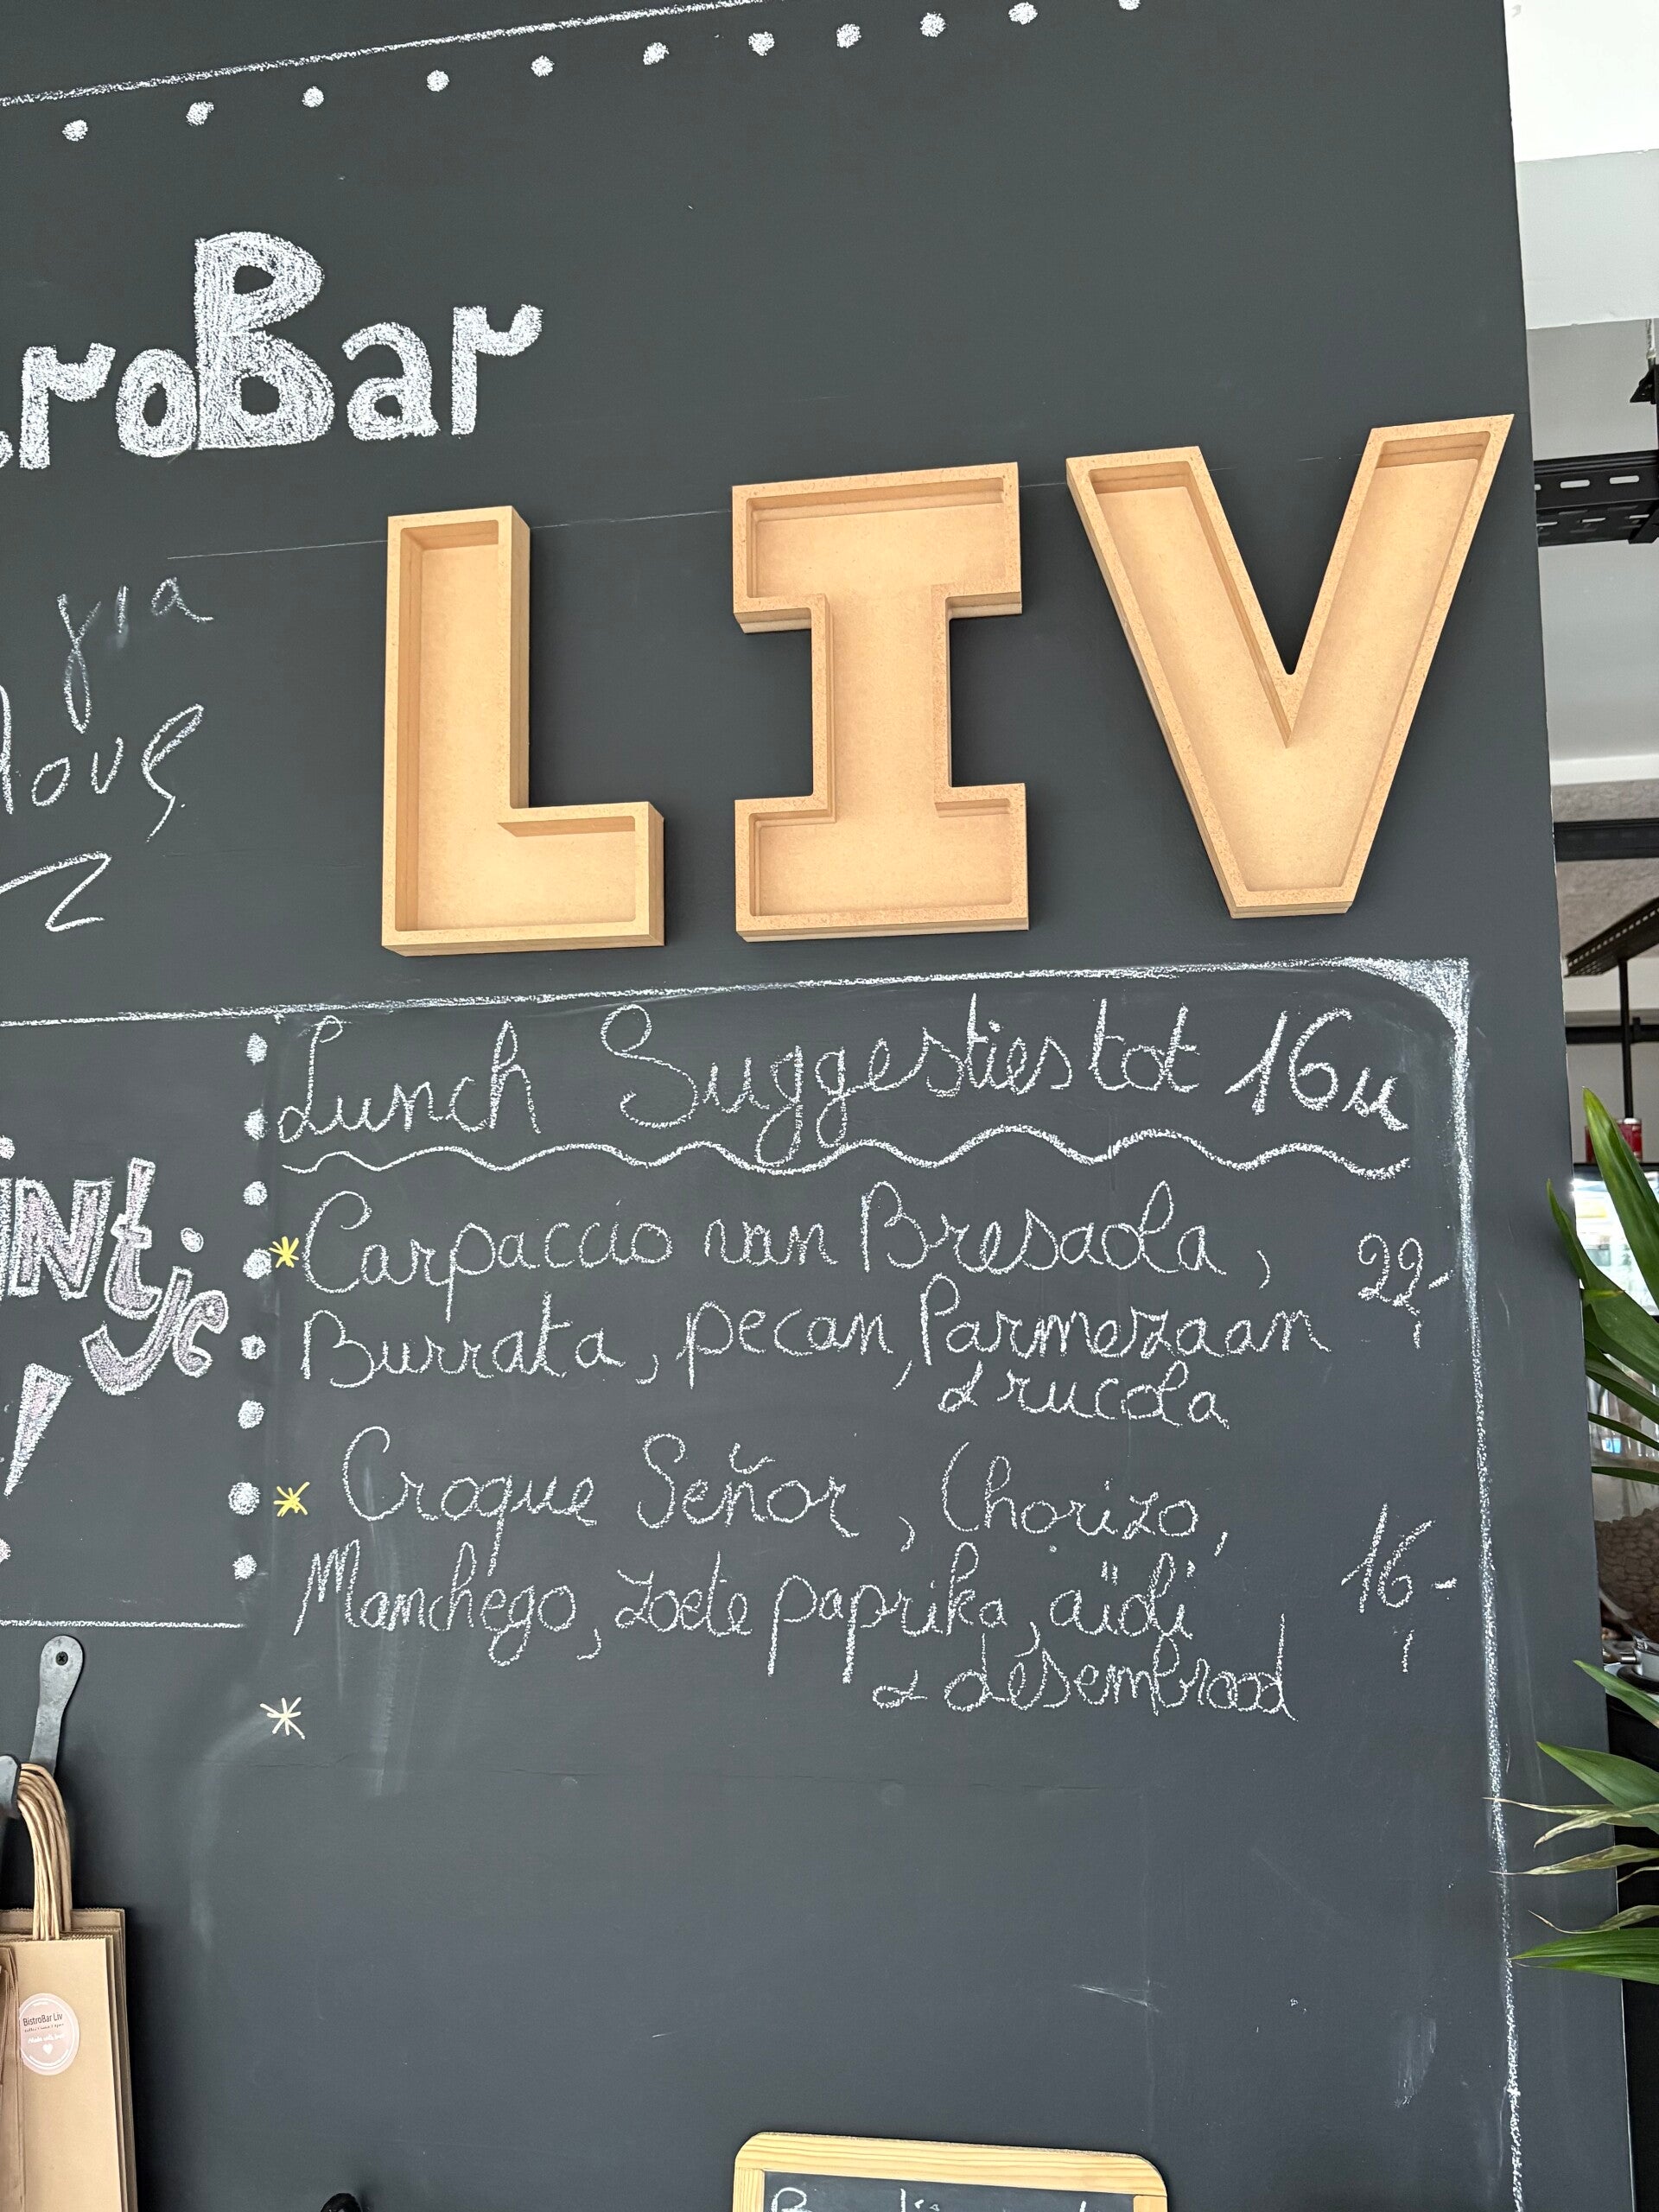 BistroBar
LIV
love
Lunch Suggesties tot 16u
Carpaccio van Bresaola,
22,-
Burrata, pecan, Parmezaan
& rucola
Croque Señor, Chorizo,
16,-
Manchego, zoete paprika, aïoli
& desembrood
BistroBar Liv